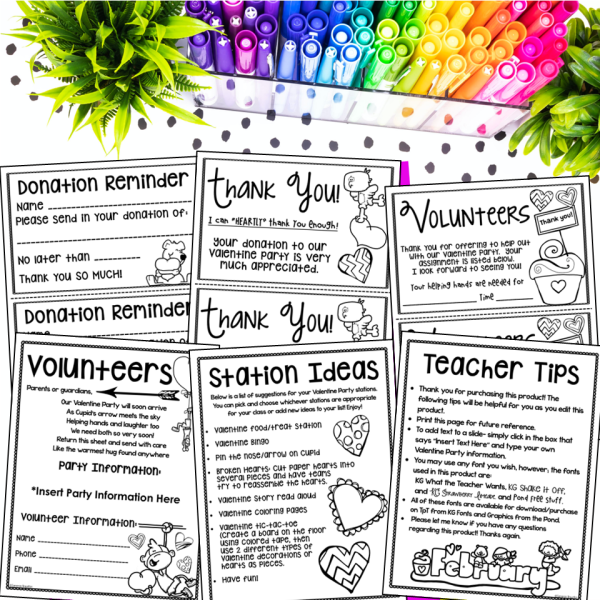 Donation Reminder
Name
Please send in your donation of:
No later than
Thank you SO MUCH!
Donation Reminder
Thank You!
I can "HEARTLY" thank you enough!
Your donation to our
Valentine Party is very
much appreciated.
Thank You!
Volunteers
Thank you!
Thank you for offering to help out
with our Valentine Party. Your
assignment is listed below.
I look forward to seeing you!
Your helping hands are needed for
Time
Volunteers
Parents or guardians,
Our Valentine Party will soon arrive
As Cupid's arrow meets the sky
Helping hands and laughter too
We need both so very soon!
Return this sheet and send with care
Like the warmest hug found anywhere
Party Information:
*Insert Party Information Here
Volunteer Information:
Name
Phone
Email
Station Ideas
Below is a list of suggestions for your Valentine Party stations.
You can pick and choose whichever stations are appropriate
for your class or add new ideas to your list! Enjoy!
• Valentine food/treat station
• Valentine Bingo
• Pin the nose/arrow on Cupid
• Broken Hearts: Cut paper hearts into
several pieces and have teams
try to reassemble the hearts.
• Valentine story read aloud
• Valentine coloring pages
• Valentine tic-tac-toe
(create a board on the floor
using colored tape, then
use 2 different types of
Valentine decorations or
hearts as pieces.
• Have fun!
Teacher Tips
• Thank you for purchasing this product! The
following tips will be helpful for you as you edit this
product.
• Print this page for future reference.
• To add text to a slide- simply click in the box that
says "Insert Text Here" and type your own
Valentine Party information.
• You may use any font you wish, however, the fonts
used in this product are:
KG What The Teacher Wants, KG Shake It Off,
and
• All of these fonts are available for download/purchase
on TpT from KG Fonts and Graphics From the Pond.
• Please let me know if you have any questions
regarding this product! Thanks again.
February